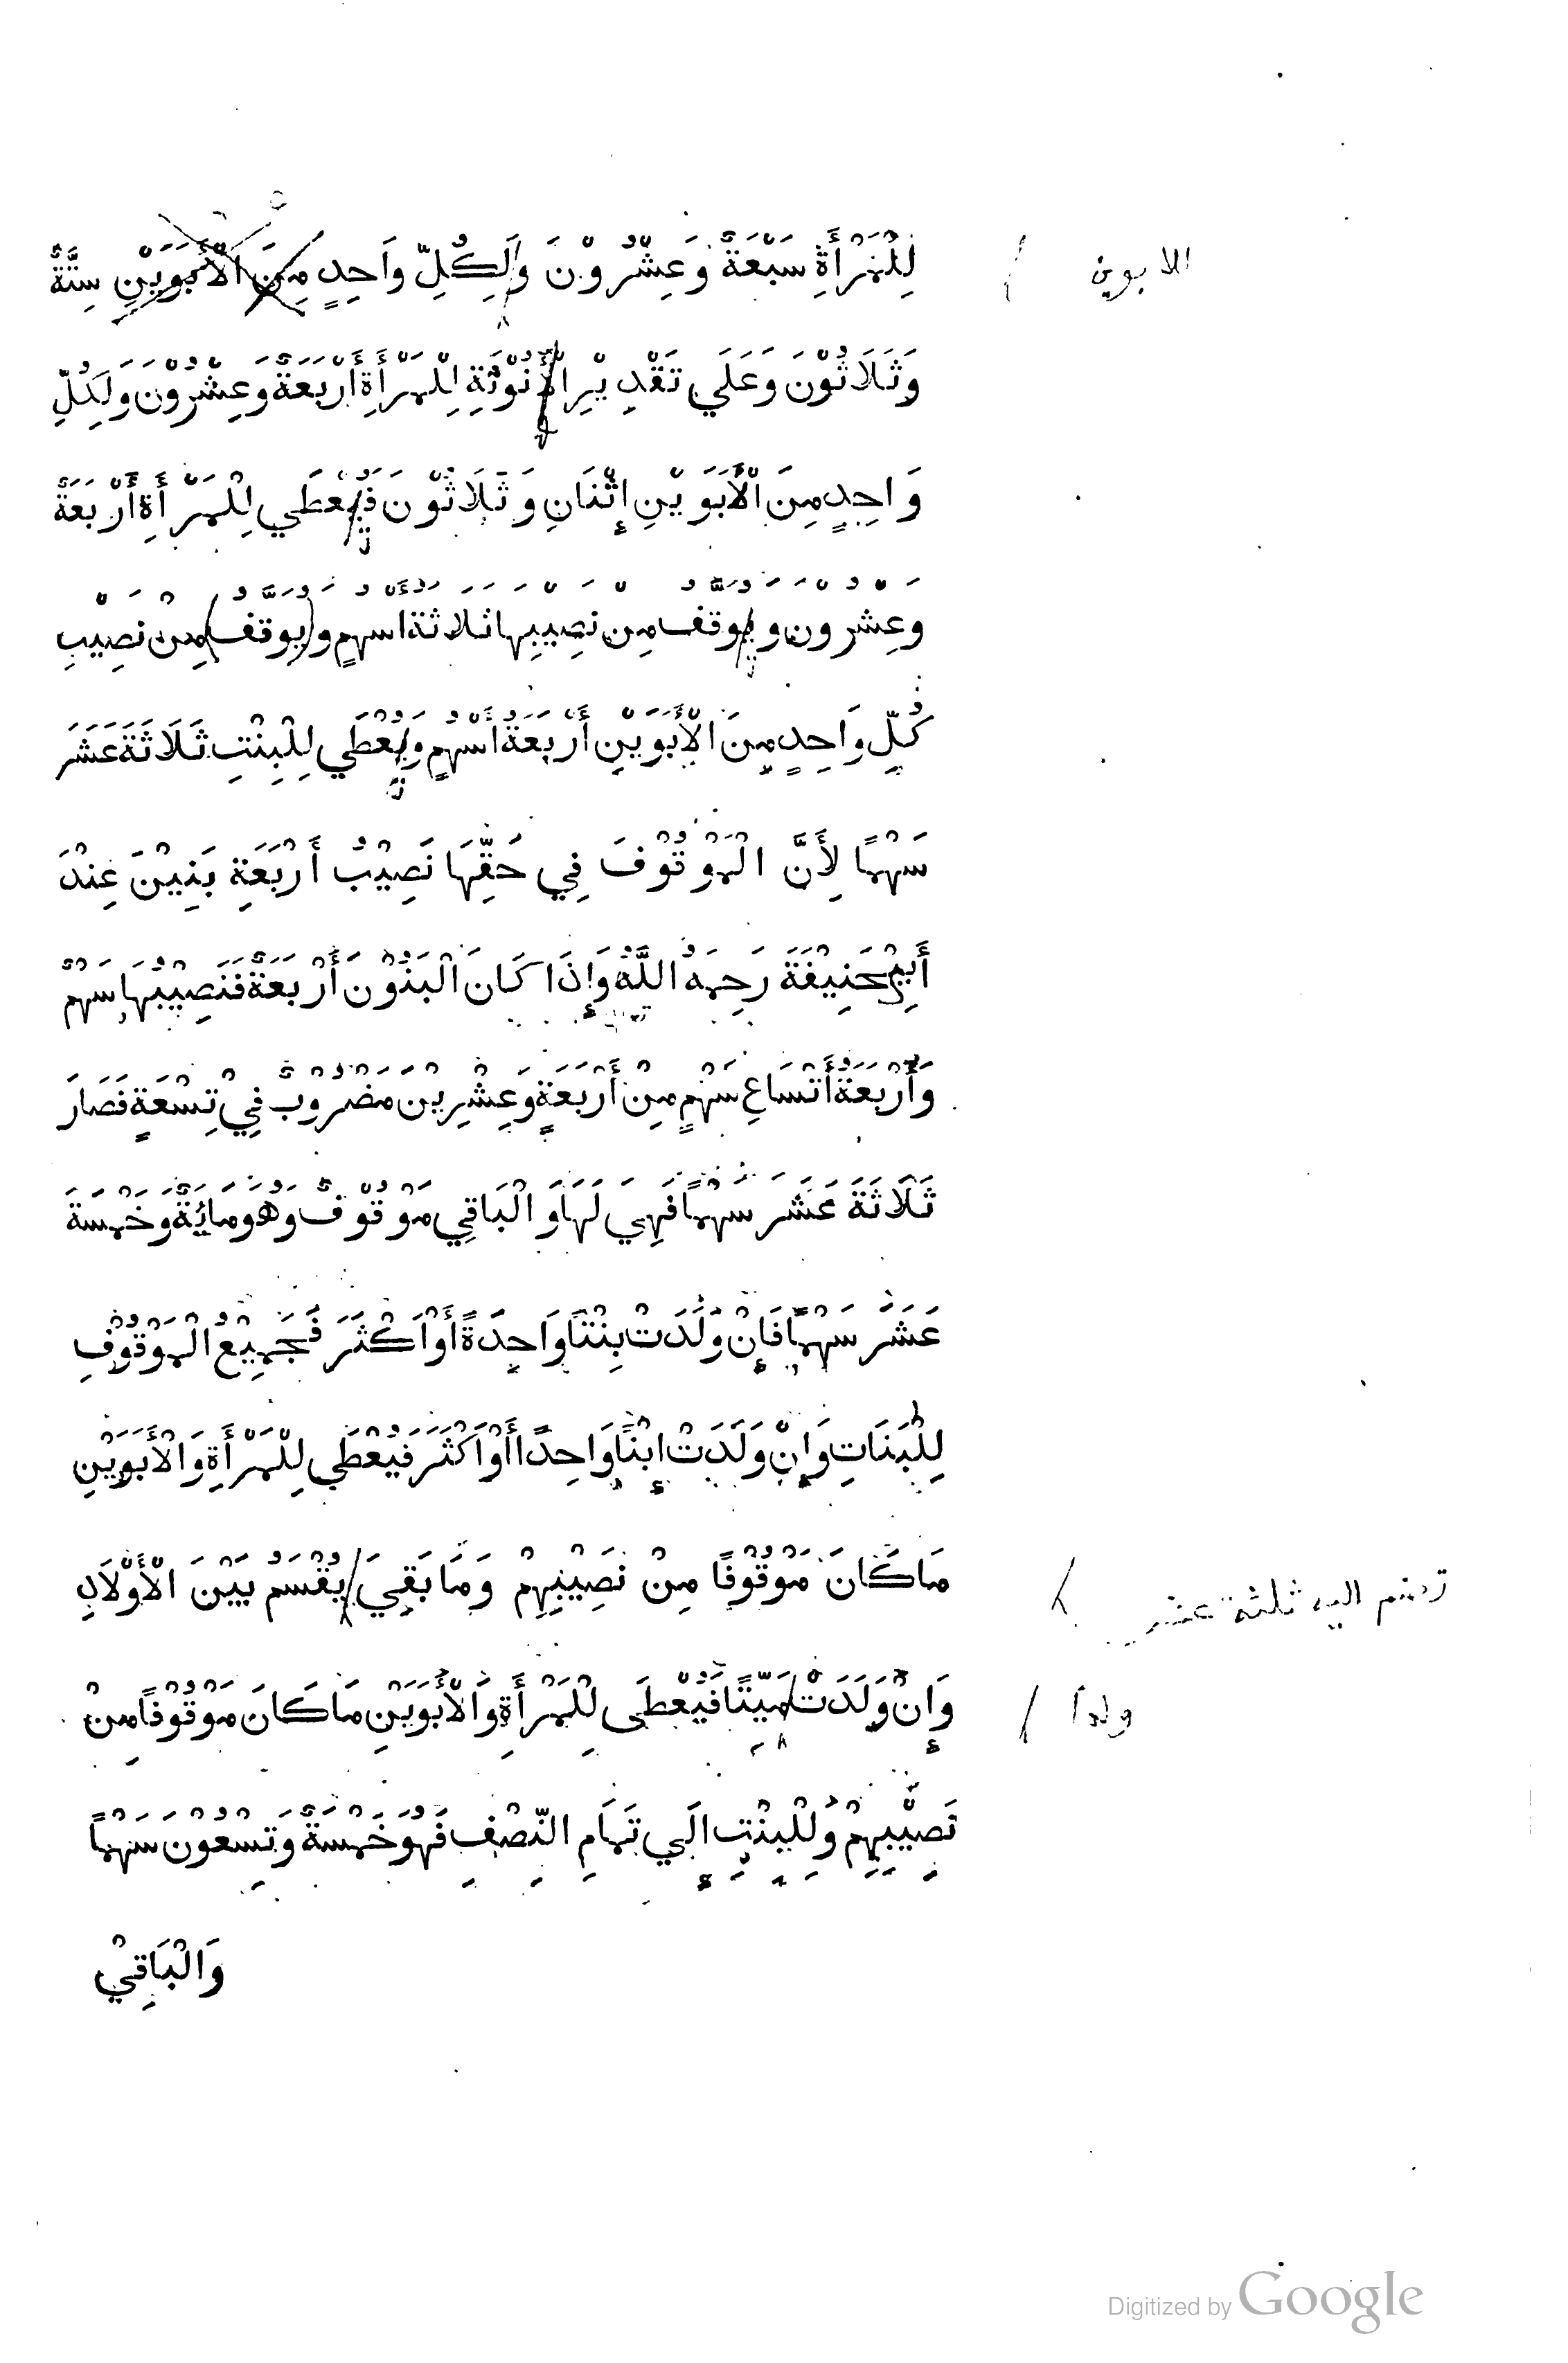 لِلْمَرْأَةِ سَبْعَةٌ وَعِشْرُوْنَ وَلِكُلِّ وَاحِدٍ مِنَ الْأَبَوَيْنِ سِتَّةٌ
الابوين
وَثَلَاثُوْنَ وَعَلَي تَقْدِيْرِ الْأُنُوْثَةِ لِلْمَرْأَةِ أَرْبَعَةٌ وَعِشْرُوْنَ وَلِكُلِّ
وَاحِدٍ مِنَ الْأَبَوَيْنِ إِثْنَانِ وَثَلَاثُوْنَ فَيُعْطَي لِلْمَرْأَةِ أَرْبَعَةٌ
وَعِشْرُوْنَ وَيُوَقَّفُ مِنْ نَصِيبِهَا ثَلَاثَةُ أَسْهُمٍ وَيُوَقَّفُ مِنْ نَصِيْبِ
كُلِّ وَاحِدٍ مِنَ الْأَبَوَيْنِ أَرْبَعَةُ أَسْهُمٍ وَيُعْطَي لِلْبِنْتِ ثَلَاثَةَ عَشَرَ
سَهْمًا لِأَنَّ الْمَوْقُوْفَ فِي حَقِّهَا نَصِيْبُ أَرْبَعَةِ بَنِيْنَ عِنْدَ
أَبِيْ حَنِيْفَةَ رَحِمَهُ اللَّهُ وَإِذَا كَانَ الْبَنُوْنَ أَرْبَعَةً فَنَصِيْبُهَا سَهْمٌ
وَأَرْبَعَةُ أَتْسَاعِ سَهْمٍ مِنْ أَرْبَعَةٍ وَعِشْرِيْنَ مَضْرُوْبٌ فِيْ تِسْعَةٍ فَصَارَ
ثَلَاثَةَ عَشَرَ سَهْمًا فَهِيَ لَهَا وَالْبَاقِي مَوْقُوْفٌ وَهُوَ مَائَةٌ وَخَمْسَةَ
عَشَرَ سَهْمًا فَإِنْ وَلَدَتْ بِنْتًا وَاحِدَةً أَوْ أَكْثَرَ فَجَمِيْعُ الْمَوْقُوْفِ
لِلْبَنَاتِ وَإِنْ وَلَدَتْ إِبْنًا وَاحِدًا أَوْ أَكْثَرَ فَيُعْطَي لِلْمَرْأَةِ وَالْأَبَوَيْنِ
مَا كَانَ مَوْقُوْفًا مِنْ نَصِيْبِهِمْ وَمَا بَقِيَ يُقْسَمُ بَيْنَ الْأَوْلَادِ
اليه ثلثة عشر
وَإِنْ وَلَدَتْ مَيِّتًا فَيُعْطَى لِلْمَرْأَةِ وَالْأَبَوَيْنِ مَا كَانَ مَوْقُوْفًا مِنْ
ولدا
نَصِيْبِهِمْ وَلِلْبِنْتِ إِلَي تَمَامِ النِّصْفِ فَهُوَ خَمْسَةٌ وَتِسْعُوْنَ سَهْمًا
وَالْبَاقِيْ
Digitized by Google